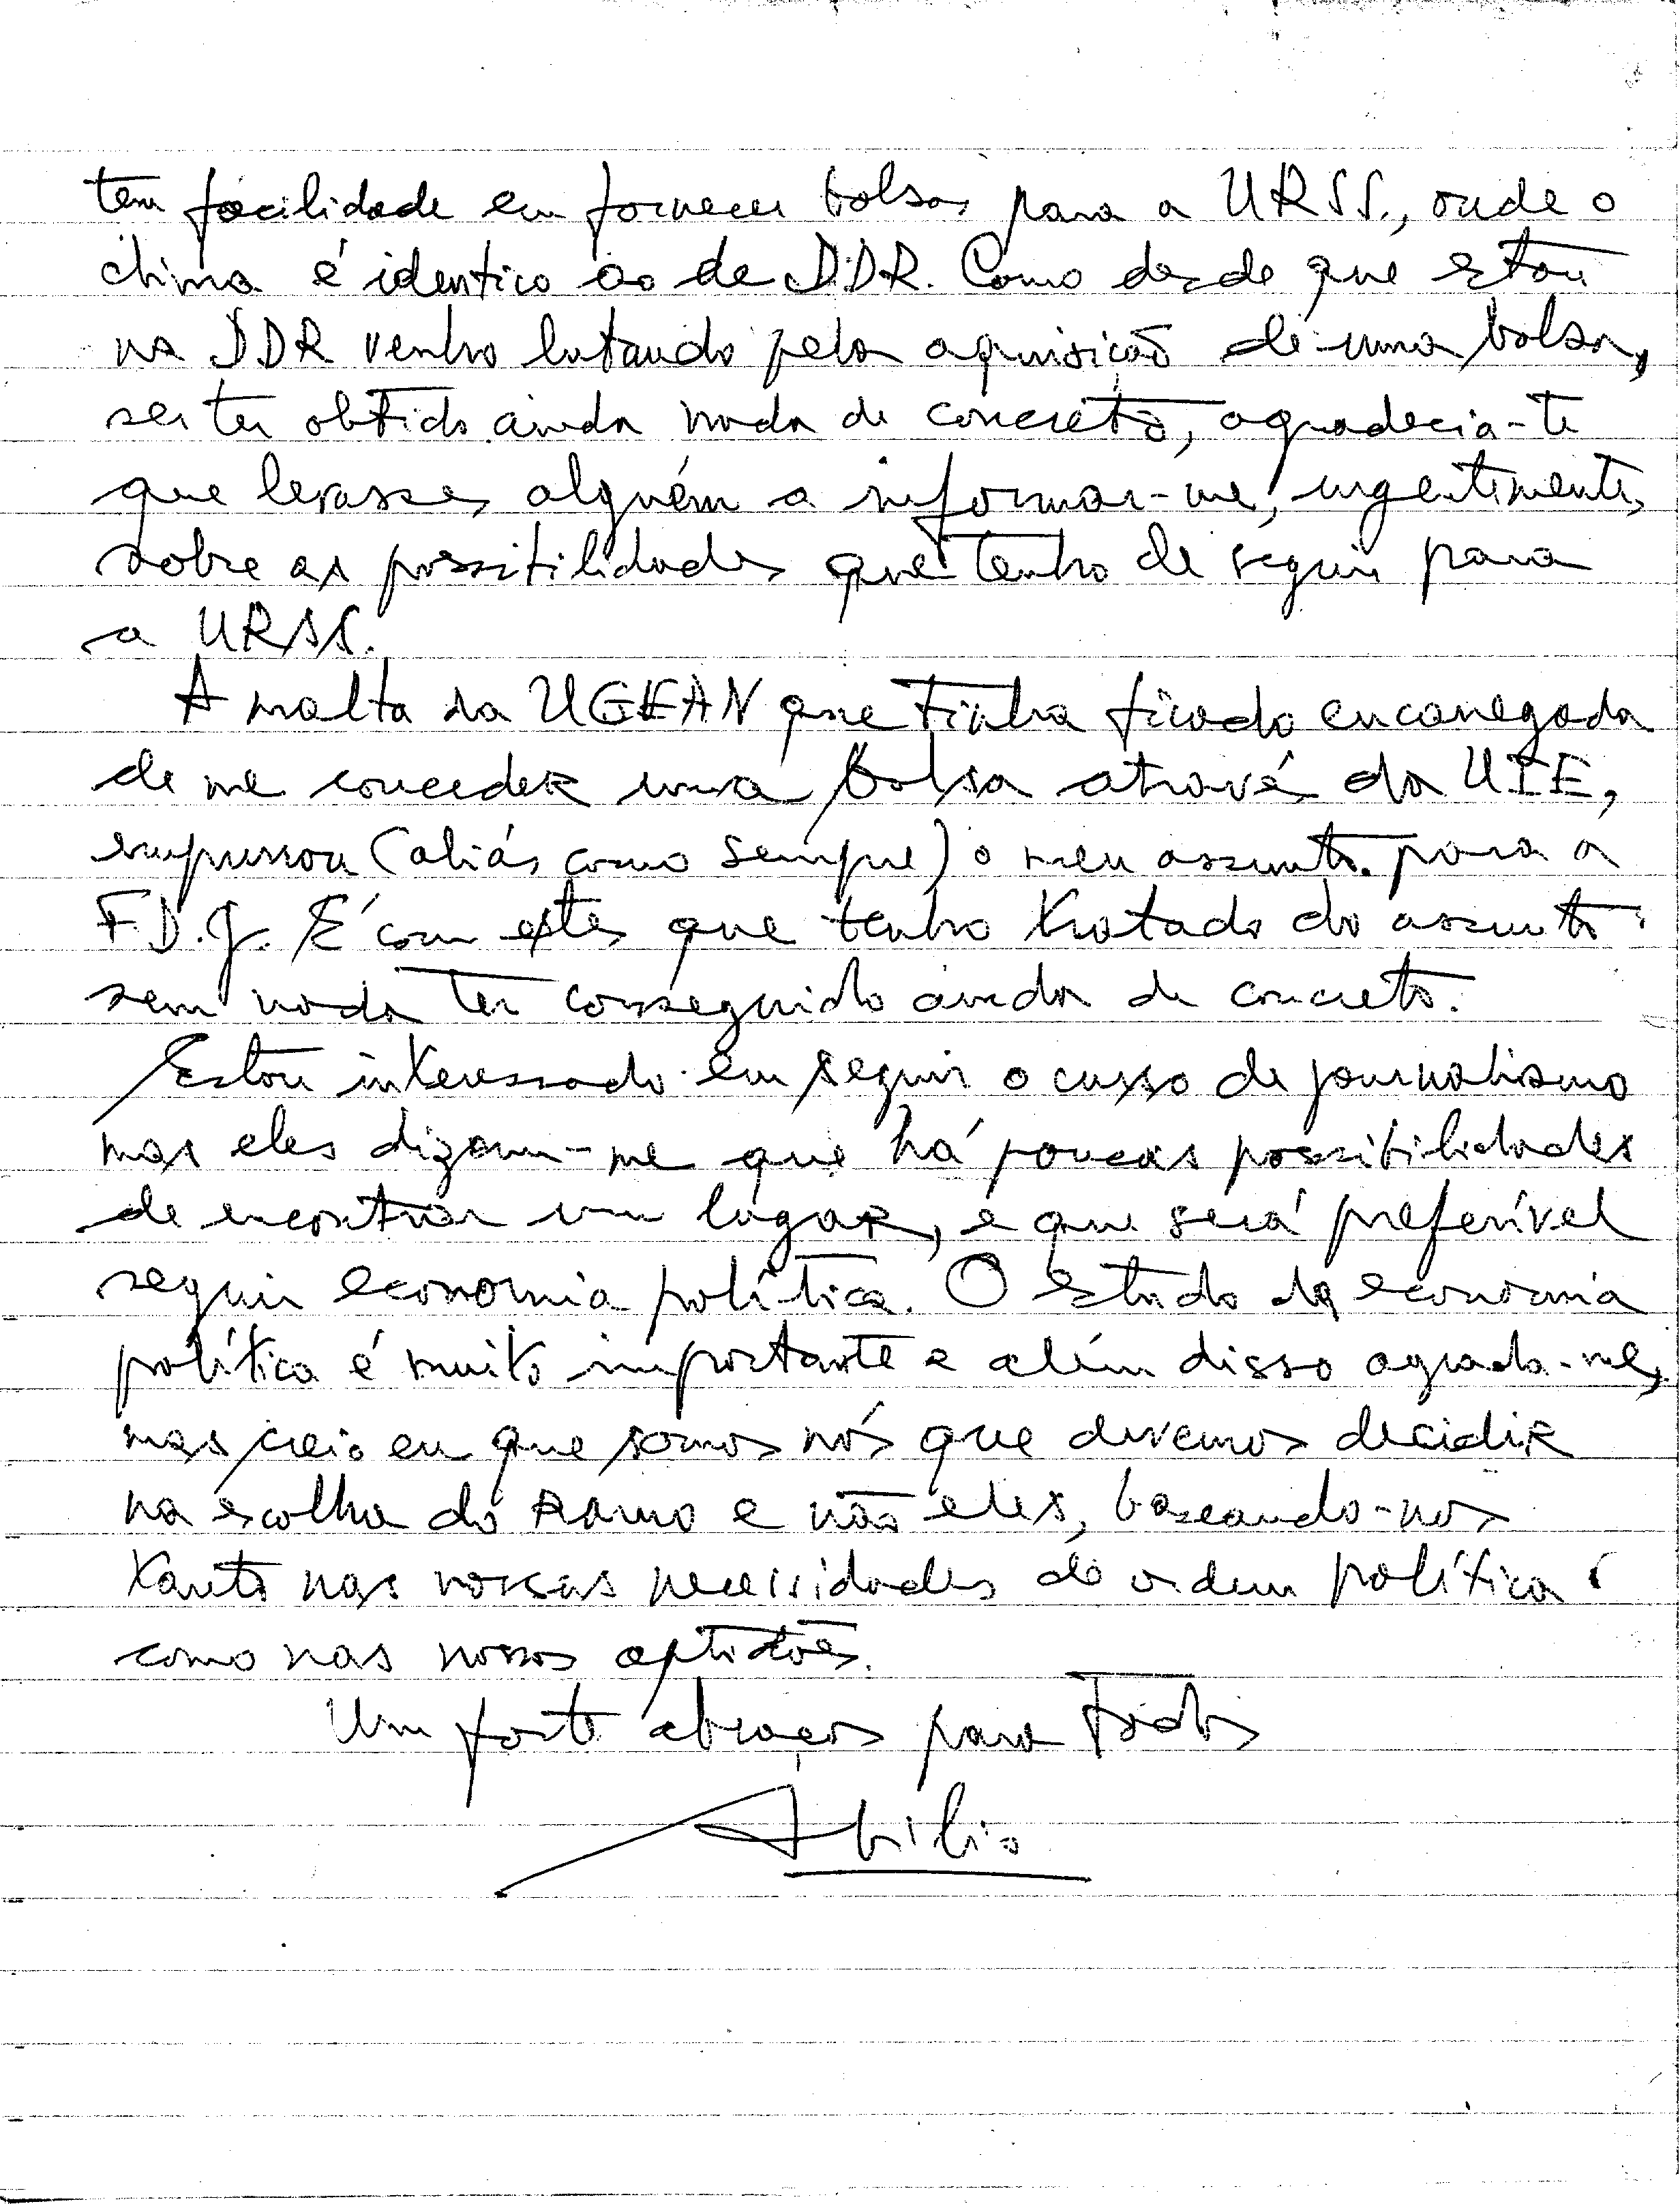 tem facilidade em fornecer bolsas para a URSS., onde o
clima é identico ao de DDR. Como desde que estou
na DDR venho lutando pela aquisição de uma bolsa,
ser ter obtido ainda nada de concreto, agradecia-te
que levasses alguém a informar-me, urgentemente,
sobre as possibilidades que tenho de seguir para
a URSS.
A malta da UGEAN que tinha ficado encarregada
de me conceder uma bolsa através da UIE,
empurrou (aliás como sempre) o meu assunto para a
F.D.J. É com estes que tenho tratado do assunto
sem nada ter conseguido ainda de concreto.
Estou interessado em seguir o curso de jornalismo
mas eles dizem-me que há poucas possibilidades
de encontrar um lugar, e que será preferível
seguir economia política. O estudo da economia
política é muito importante e além disso agrada-me,
mas creio eu que somos nós que devemos decidir
na escolha do ramo e não eles, baseando-nos
tanto nas nossas necessidades de ordem política
como nas nossas aptidões.
Um forte abraços para todos
Abílio